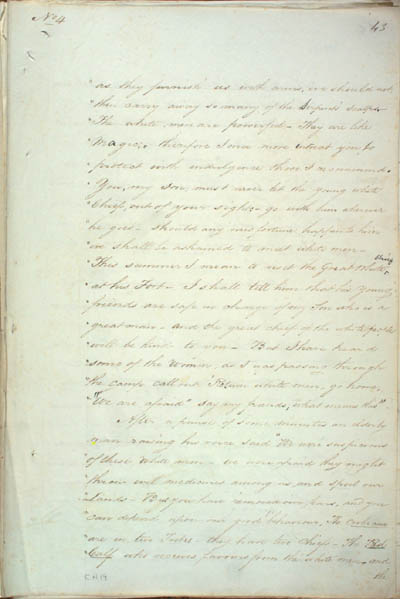 No. 4
43
" as they furnish us with arms, we should not
" then carry away so many of the Serpents scalps
" The white men are powerful - They are like
" Magic, - therefore I once more entreat you to
" protect with indulgence those I recommend.
" You, my son, must never let the young white
" Chief, out of your sight - go with him wherever
" he goes - should any misfortune happen to him
" we shall be ashamed to meet white men -
" This summer I mean to visit the Great White Chief
" at his Fort - I shall tell him that his young
" friends are safe in charge of my Son who is a
" great man - and the great chief of the white people
" will be kind to you - But I have heard
" some of the women, as I was passing through
" the camp call out " Return white men, go home,
" We are afraid" Say my friends, what means this" -
After a pause of some minutes an elderly
man raising his voice said " We were suspicious
of these white men - we were afraid they might
throw evil medicines among us and spoil our
lands - But you have removed our fears, and you
can depend upon our good behaviour, The
are in two Tribes - they have two chiefs - The Red
Calf who receives favours from the white men - and
the
C.H19